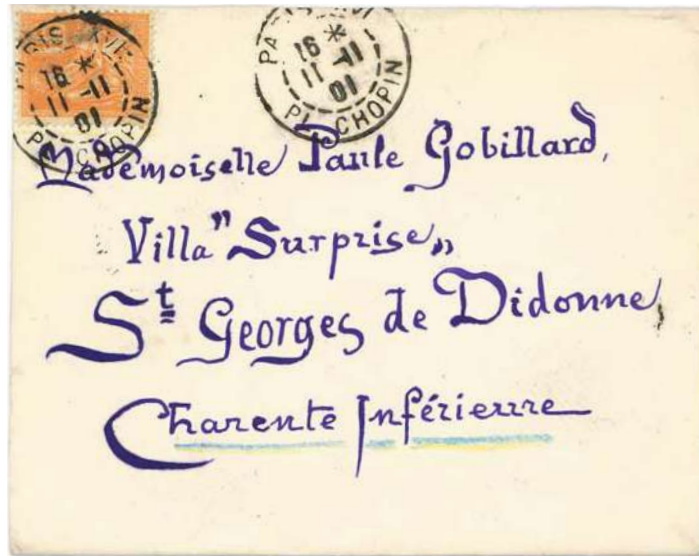 PARIS XVI
16 *
11 -11
01
PL. CHOPIN
PARIS XVI
16 *
11 -11
01
PL. CHOPIN
Mademoiselle Paule Gobillard,
Villa "Surprise"
St Georges de Didonne
Charente Inférieure